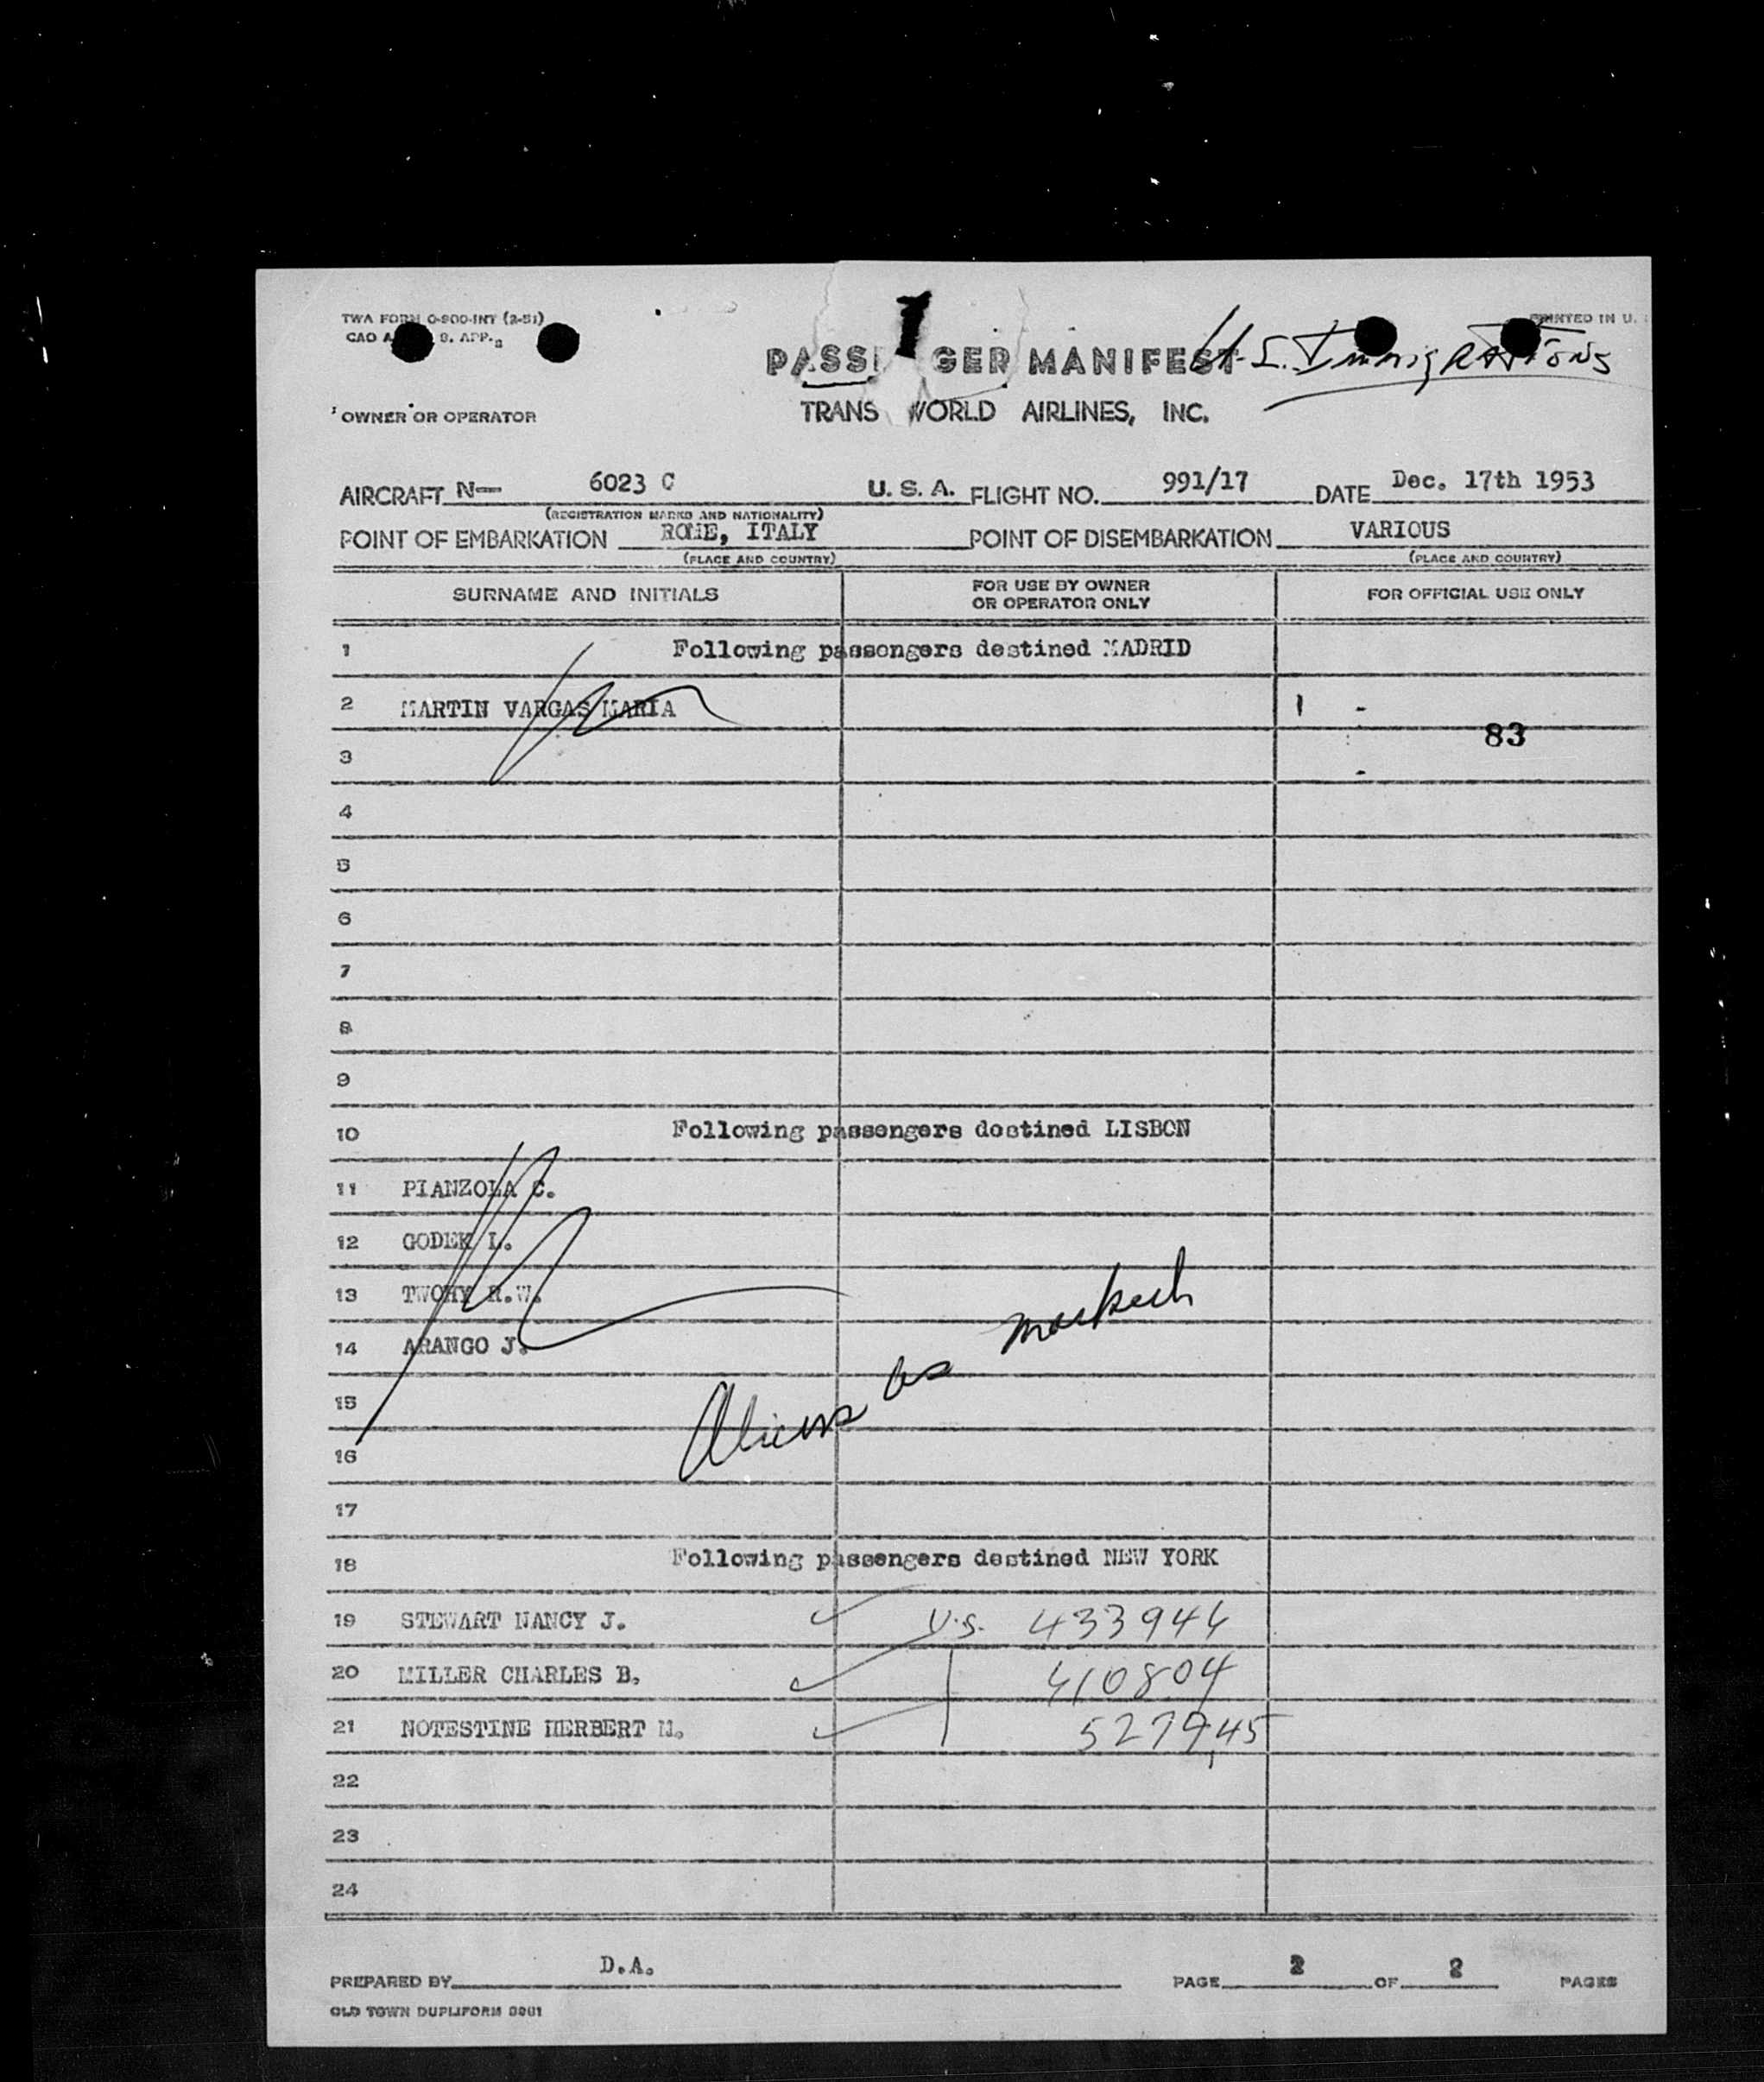 TWA FORM O-900-INT (2-51)
PRINTED IN U.
CAO A 9. APP.
U.S. Immigrations
PASSENGER MANIFEST
OWNER OR OPERATOR
TRANS WORLD AIRLINES, INC.
AIRCRAFT N— 6023 C U. S. A. FLIGHT NO. 991/17 DATE Dec. 17th 1953
(REGISTRATION MARKS AND NATIONALITY)
POINT OF EMBARKATION ROME, ITALY POINT OF DISEMBARKATION VARIOUS
(PLACE AND COUNTRY) (PLACE AND COUNTRY)
SURNAME AND INITIALS FOR USE BY OWNER OR OPERATOR ONLY FOR OFFICIAL USE ONLY
1 Following passengers destined MADRID
2 MARTIN VARGAS MARIA 1 -
83
3
4
5
6
7
8
9
10 Following passengers destined LISBON
11 PIANZOLA C.
12 GODEK L.
13 TWOHY R.W.
14 ARANGO J.
Aliens as marked
15
16
17
18 Following passengers destined NEW YORK
19 STEWART NANCY J. U.S. 433944
20 MILLER CHARLES B. 410804
21 NOTESTINE HERBERT M. 527945
22
23
24
PREPARED BY D.A. PAGE 2 OF 2 PAGES
OLD TOWN DUPLIFORM